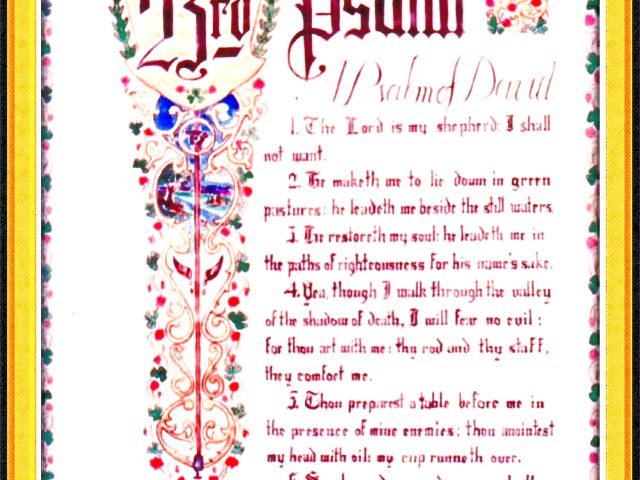 23rd Psalm
A Psalm of David
1. The Lord is my shepherd; I shall
not want.
2. He maketh me to lie down in green
pastures: he leadeth me beside the still waters.
3. He restoreth my soul: he leadeth me in
the paths of righteousness for his name's sake.
4. Yea, though I walk through the valley
of the shadow of death, I will fear no evil:
for thou art with me: thy rod and thy staff,
they comfort me.
5. Thou preparest a table before me in
the presence of mine enemies: thou anointest
my head with oil; my cup runneth over.